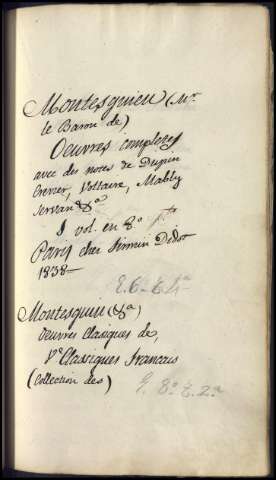 Montesquieu (Mr.
le Baron de)
Oeuvres completes
avec des notes de Dupin
Crevier, Voltaire, Mably
Servan &a
1 vol. en 8o pta
Paris chez Firmin Didot
1838
E. 6.
Montesquieu (&a)
Oeuvres Clasiques de,
Ve Classiques francais
(Collection des)
E. 8o t. 2a